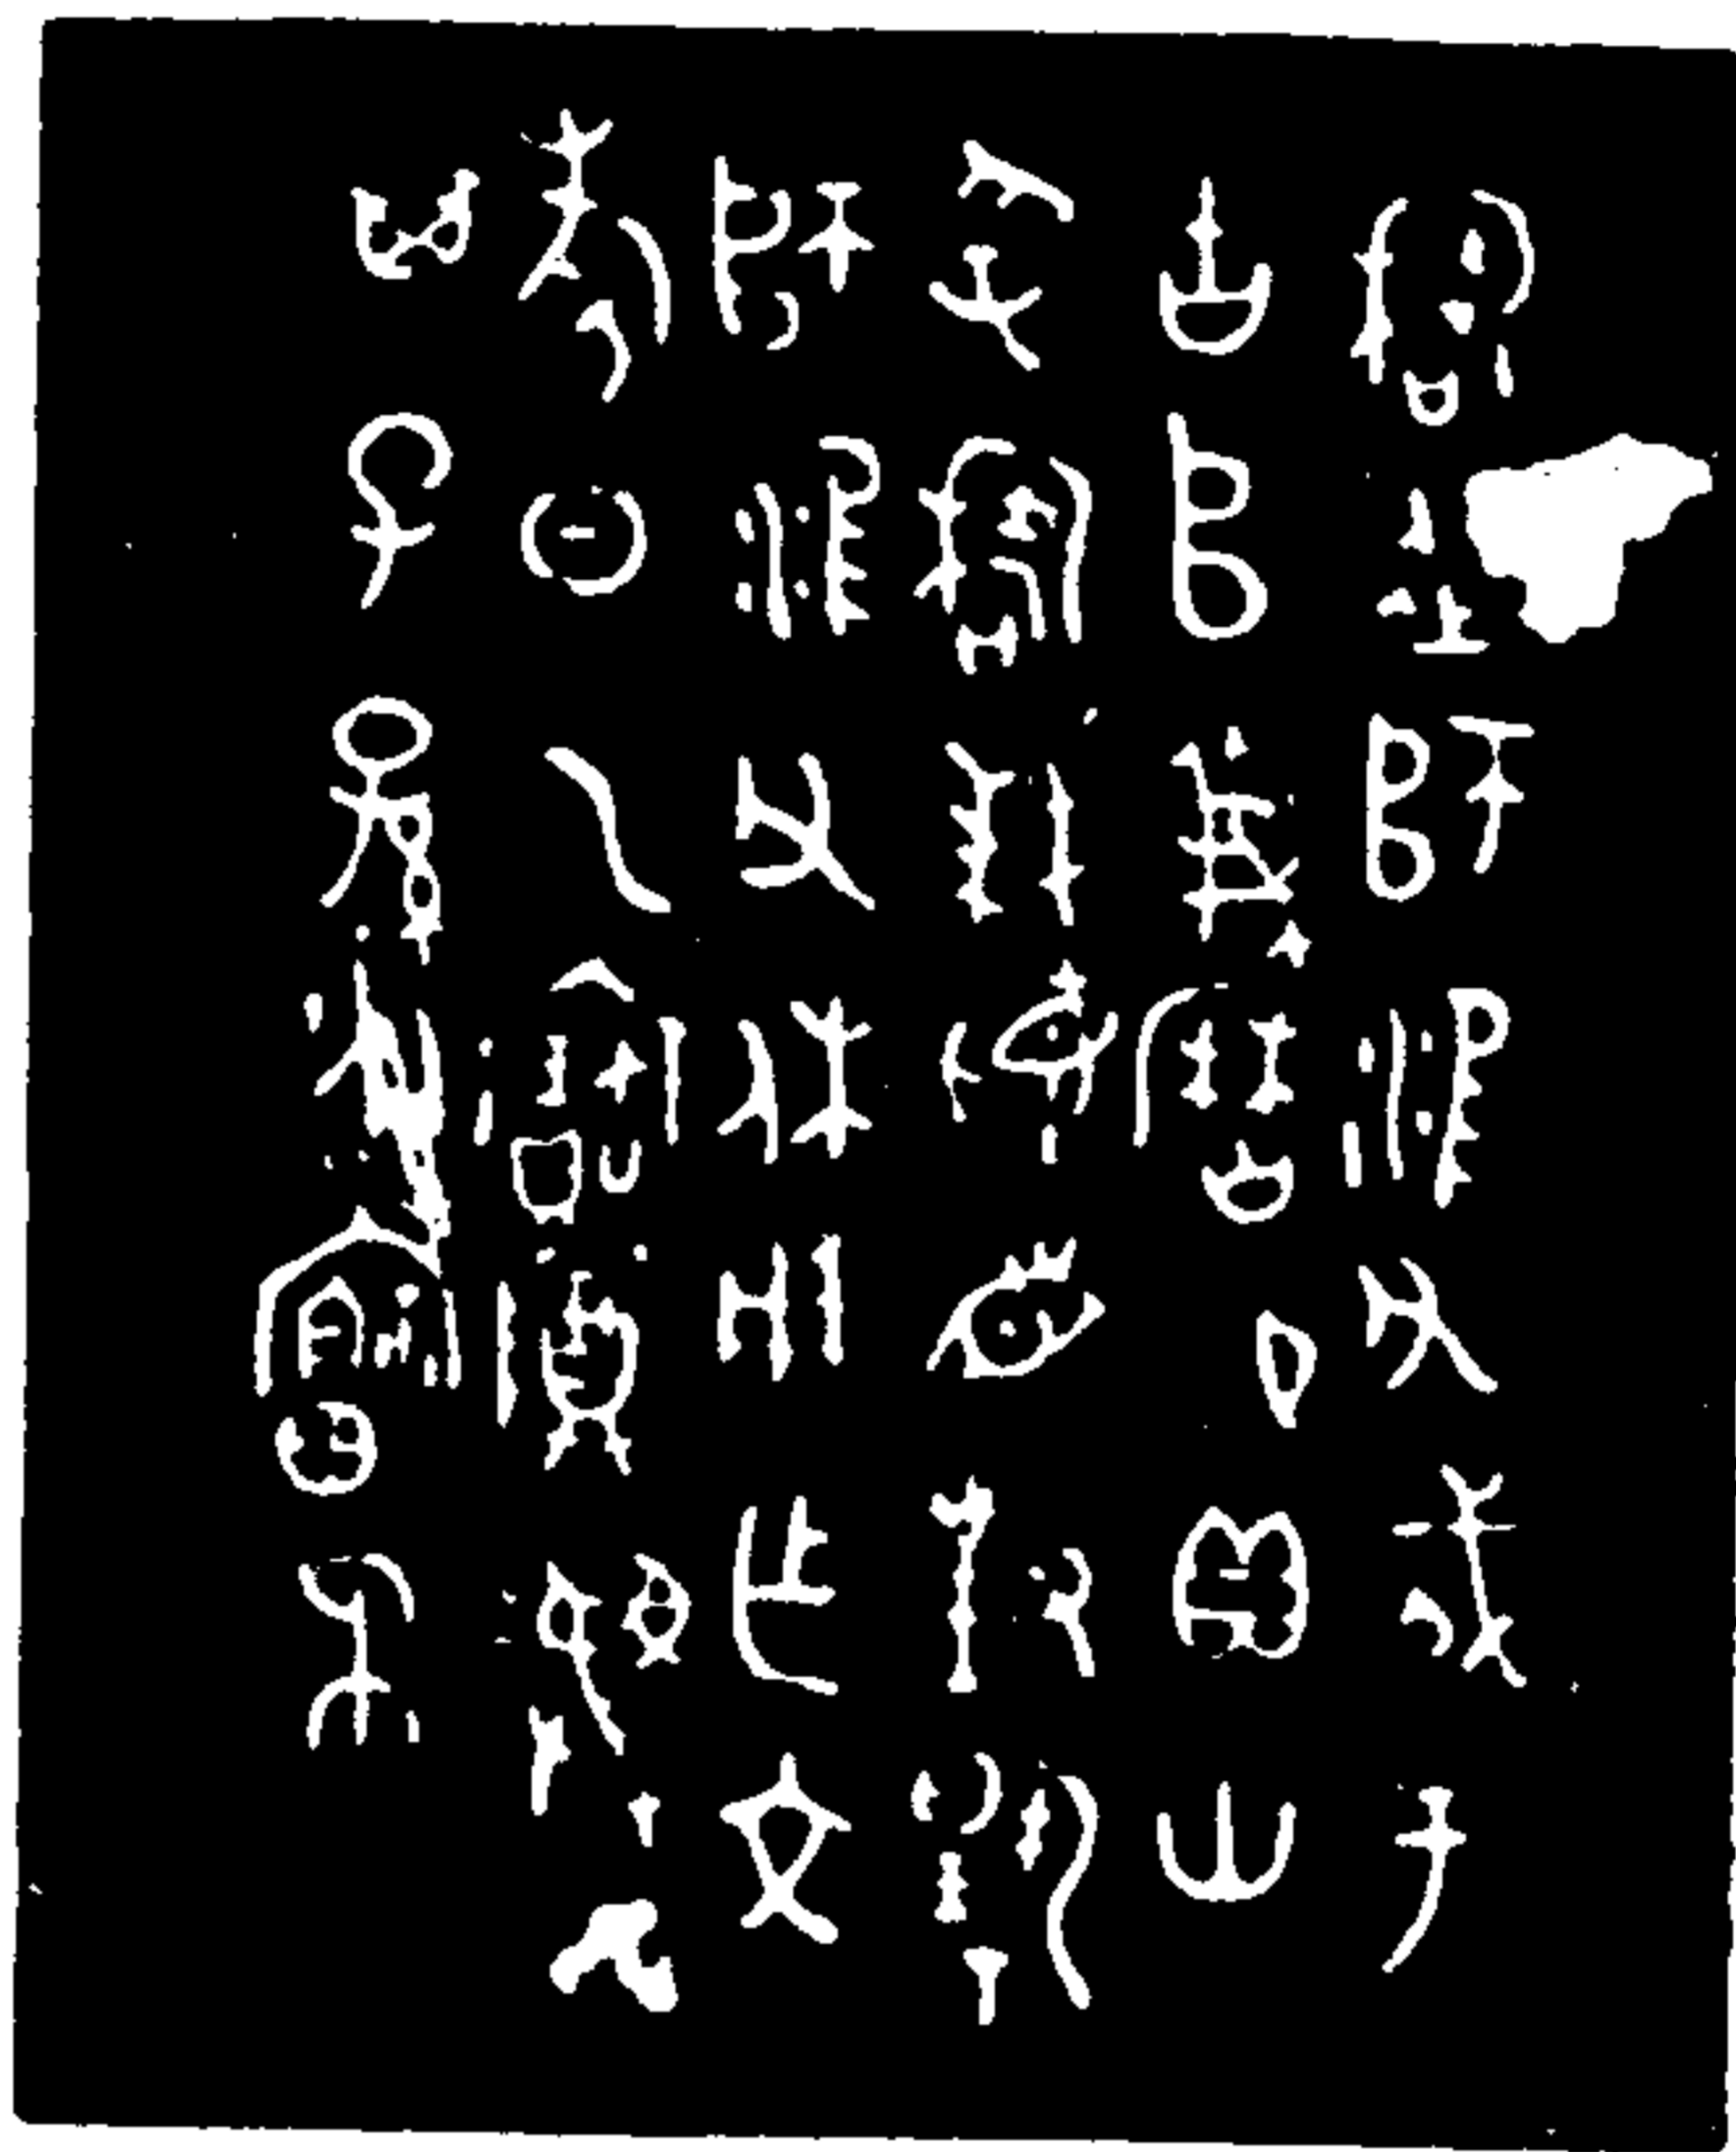 䅆從師淲父戍于
古𠂤蔑曆易貝卅
寽䅆拜𩒨首對揚
師淲父休用乍文
考日乙寶尊彝其
子子孫永福